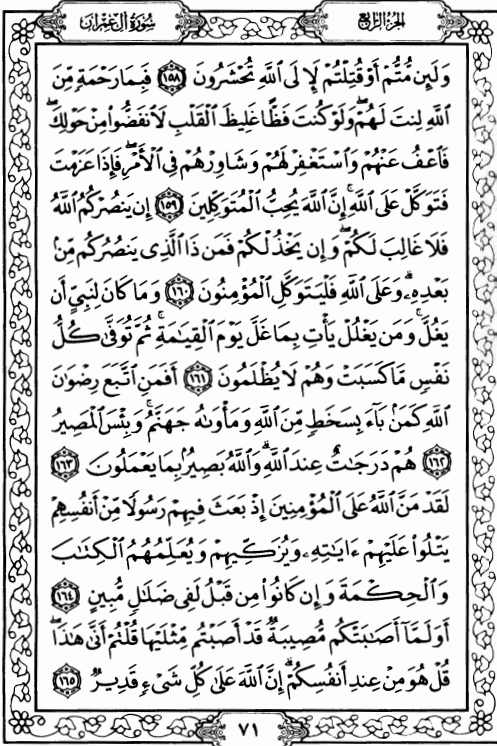 سُورَةُ آلِ عِمْرَانَ الجُزْءُ الرَّابِعُ
وَلَئِن مُّتُّمْ أَوْ قُتِلْتُمْ لَإِلَى ٱللَّهِ تُحْشَرُونَ ١٥٨ فَبِمَا رَحْمَةٍ مِّنَ
ٱللَّهِ لِنتَ لَهُمْ ۖ وَلَوْ كُنتَ فَظًّا غَلِيظَ ٱلْقَلْبِ لَٱنفَضُّوا۟ مِنْ حَوْلِكَ ۖ
فَٱعْفُ عَنْهُمْ وَٱسْتَغْفِرْ لَهُمْ وَشَاوِرْهُمْ فِى ٱلْأَمْرِ ۖ فَإِذَا عَزَمْتَ
فَتَوَكَّلْ عَلَى ٱللَّهِ ۚ إِنَّ ٱللَّهَ يُحِبُّ ٱلْمُتَوَكِّلِينَ ١٥٩ إِن يَنصُرْكُمُ ٱللَّهُ
فَلَا غَالِبَ لَكُمْ ۖ وَإِن يَخْذُلْكُمْ فَمَن ذَا ٱلَّذِى يَنصُرُكُم مِّنۢ
بَعْدِهِۦ ۗ وَعَلَى ٱللَّهِ فَلْيَتَوَكَّلِ ٱلْمُؤْمِنُونَ ١٦٠ وَمَا كَانَ لِنَبِىٍّ أَن
يَغُلَّ ۚ وَمَن يَغْلُلْ يَأْتِ بِمَا غَلَّ يَوْمَ ٱلْقِيَـٰمَةِ ۚ ثُمَّ تُوَفَّىٰ كُلُّ
نَفْسٍ مَّا كَسَبَتْ وَهُمْ لَا يُظْلَمُونَ ١٦١ أَفَمَنِ ٱتَّبَعَ رِضْوَٰنَ
ٱللَّهِ كَمَنۢ بَآءَ بِسَخَطٍ مِّنَ ٱللَّهِ وَمَأْوَىٰهُ جَهَنَّمُ ۚ وَبِئْسَ ٱلْمَصِيرُ
١٦٢ هُمْ دَرَجَـٰتٌ عِندَ ٱللَّهِ ۗ وَٱللَّهُ بَصِيرٌۢ بِمَا يَعْمَلُونَ ١٦٣
لَقَدْ مَنَّ ٱللَّهُ عَلَى ٱلْمُؤْمِنِينَ إِذْ بَعَثَ فِيهِمْ رَسُولًا مِّنْ أَنفُسِهِمْ
يَتْلُوا۟ عَلَيْهِمْ ءَايَـٰتِهِۦ وَيُزَكِّيهِمْ وَيُعَلِّمُهُمُ ٱلْكِتَـٰبَ
وَٱلْحِكْمَةَ وَإِن كَانُوا۟ مِن قَبْلُ لَفِى ضَلَـٰلٍ مُّبِينٍ ١٦٤
أَوَلَمَّآ أَصَـٰبَتْكُم مُّصِيبَةٌ قَدْ أَصَبْتُم مِّثْلَيْهَا قُلْتُمْ أَنَّىٰ هَـٰذَا ۖ
قُلْ هُوَ مِنْ عِندِ أَنفُسِكُمْ ۗ إِنَّ ٱللَّهَ عَلَىٰ كُلِّ شَىْءٍ قَدِيرٌ ١٦٥
٧١